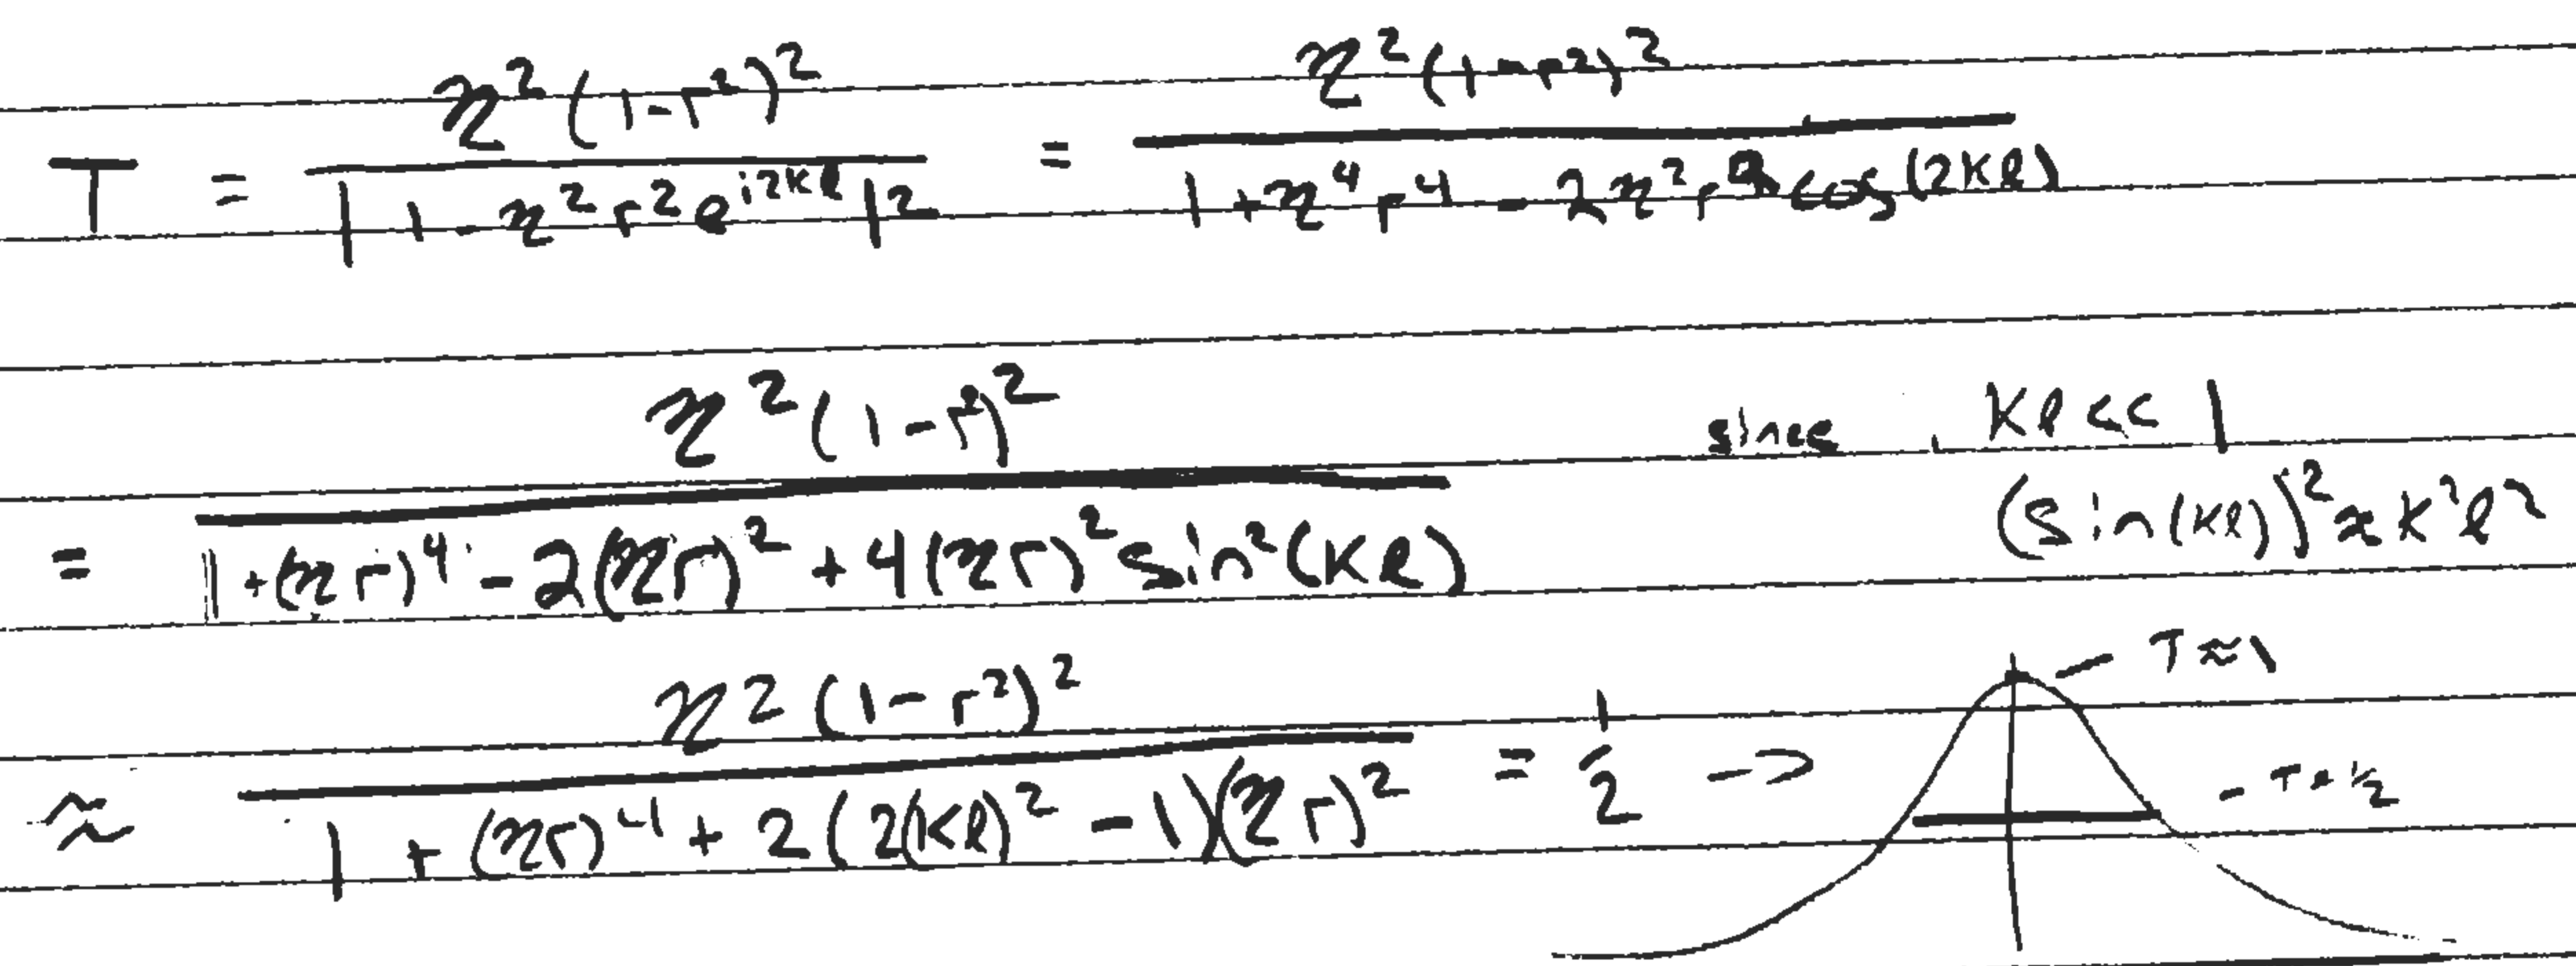 T = η²(1-r²)² / |1 - η²r²e^{i2kl}|² = η²(1-r²)² / 1 + η⁴r⁴ - 2η²r² cos(2kl)
= η²(1-r²)² / 1 + (ηr)⁴ - 2(ηr)² + 4(ηr)² sin²(kl) since kl << 1
(sin(kl))² ≈ k²l²
≈ η²(1-r²)² / 1 + (ηr)⁴ + 2(2(kl)² - 1)(ηr)² = 1/2 →
- T ≈ 1
- T = 1/2